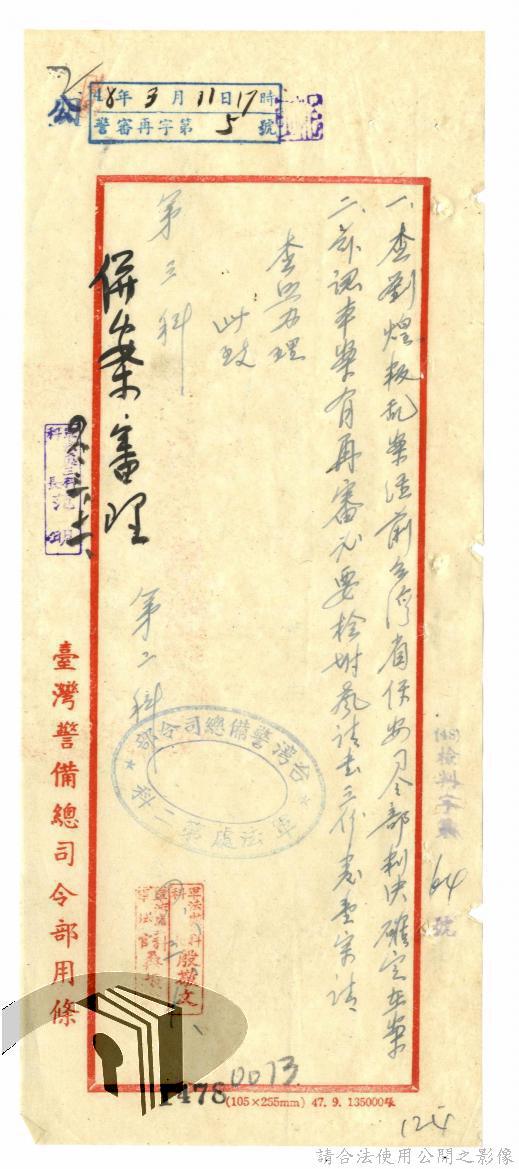 48年3月11日17時
警審再字第5號
公
一、查劉煌叛乱案經前台灣省保安司令部判決確定在案
二、茲認本案有再審必要檢附聲請書三份卷壹宗請
查照办理
此致
第三科
第二科
併案審理
台灣警備總司令部
軍法處第二科
殷敬文
科長
臺灣警備總司令部用條
64號
1478
0073
(105×255mm) 47. 9. 135000张
請合法使用公開之影像